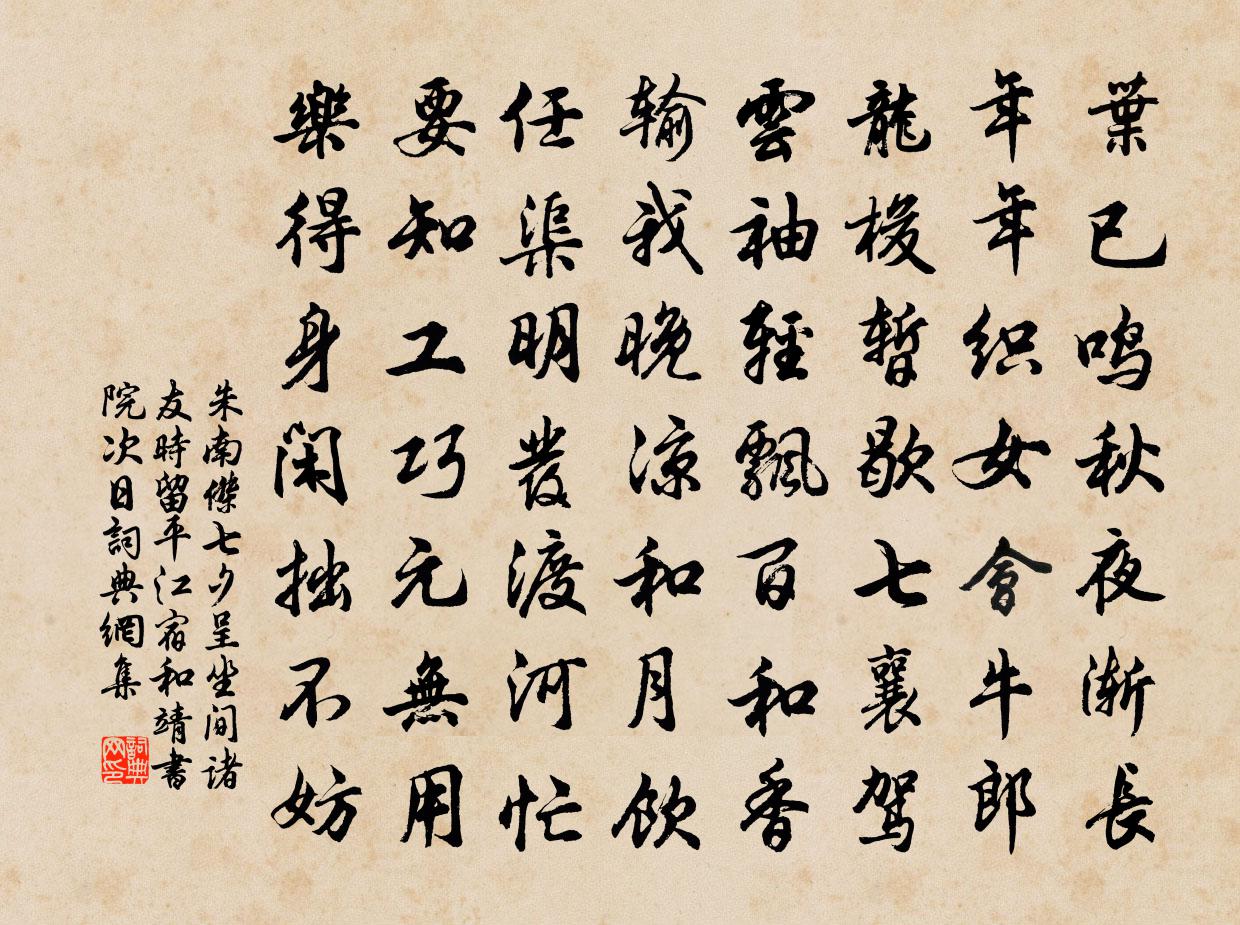 葉已鳴秋夜漸長
年年織女會牛郎
龍梭暫歇七襄駕
雲袖輕飄百和香
輸我晚涼和月飲
任渠明發渡河忙
要知工巧元無用
樂得身閑拙不妨
朱南傑七夕呈坐間諸
友時留平江宿和靖書
院次日詞典網集
詞典网印